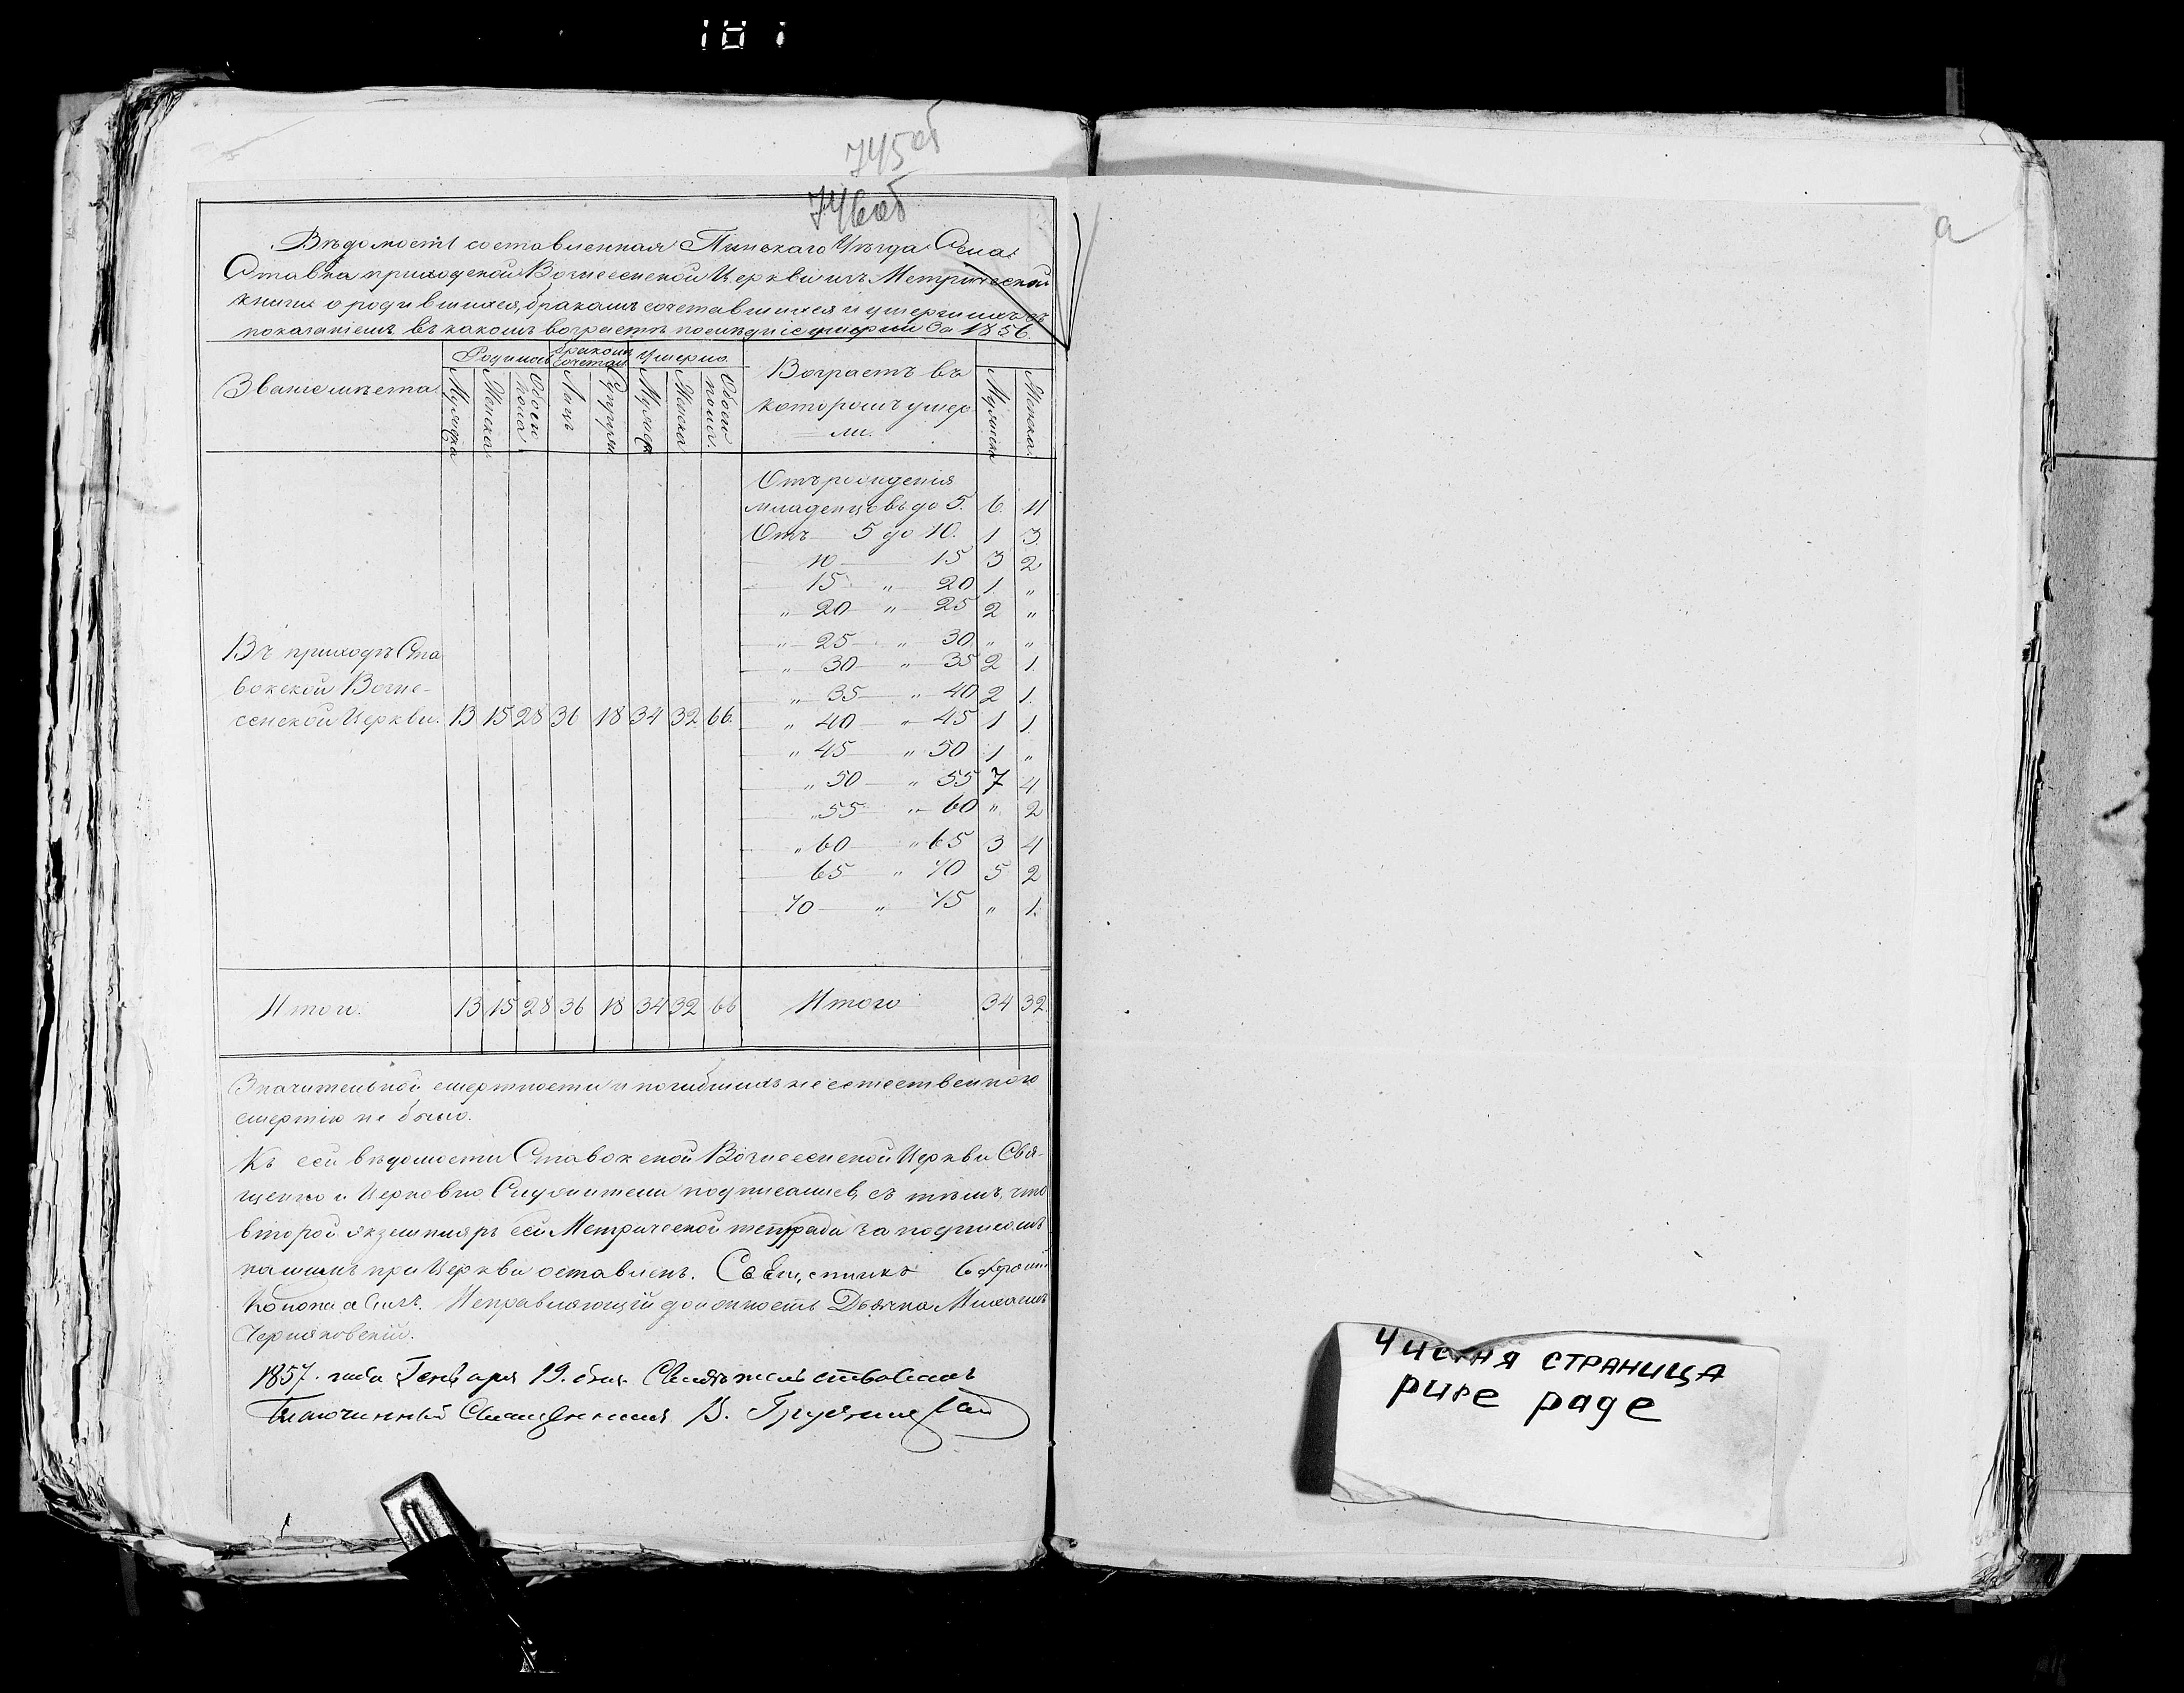 745 об
746 об
Вѣдомость составленная Пинскаго Уѣзда Села
Ставка приходской Вознесенской Церкви изъ Метрической
книги о родившихся, бракомъ сочетавшихся и умершихъ съ
показаніемъ въ какомъ возрастѣ послѣдніе умерли За 1856.
Званіе мѣста Родилось бракомъ сочетал Умерло Возрастъ въ которомъ умерли.
Мужска Женска Обоего пола Лицъ Супруж Мужск Женска Обоего пола. Мужска Женска
Отъ рожденія
младенцовъ до 5. 6. 11
Отъ 5 до 10. 1 3.
10 15 3 2
15 " 20 1. "
" 20 " 25 2 "
" 25 " 30 " "
" 30 " 35 2 1.
" 35 " 40 2 1.
" 40 " 45 1 1
" 45 " 50 1 "
" 50 " 55 7 4
" 55 " 60 " 2
" 60 " 65 3 4
65 " 70 5 2
70 " 75 " 1.
Въ приходѣ Ста
вокской Возне-
сенской Церкви. 13 15 28 36 18 34 32 66.
Итого. 13 15 28 36 18 34 32 66 Итого 34 32
Значительной смертности и погибшихъ неестественного
смертію не было.
Къ сей вѣдомости Ставокской Вознесенской Церкви Свя-
щенно и Церковно Служители подписались, съ тѣмъ, что
второй экземпляръ сей Метрической тетради за подписомъ
нашимъ при Церкви оставленъ. Священникъ
Исправляющій должность Дьячка Михаилъ
Черняковскій.
1857. года Генваря 19. дня Свидѣтельствовалъ
Благочинный Священникъ В.
a
Чистая страница
pure page